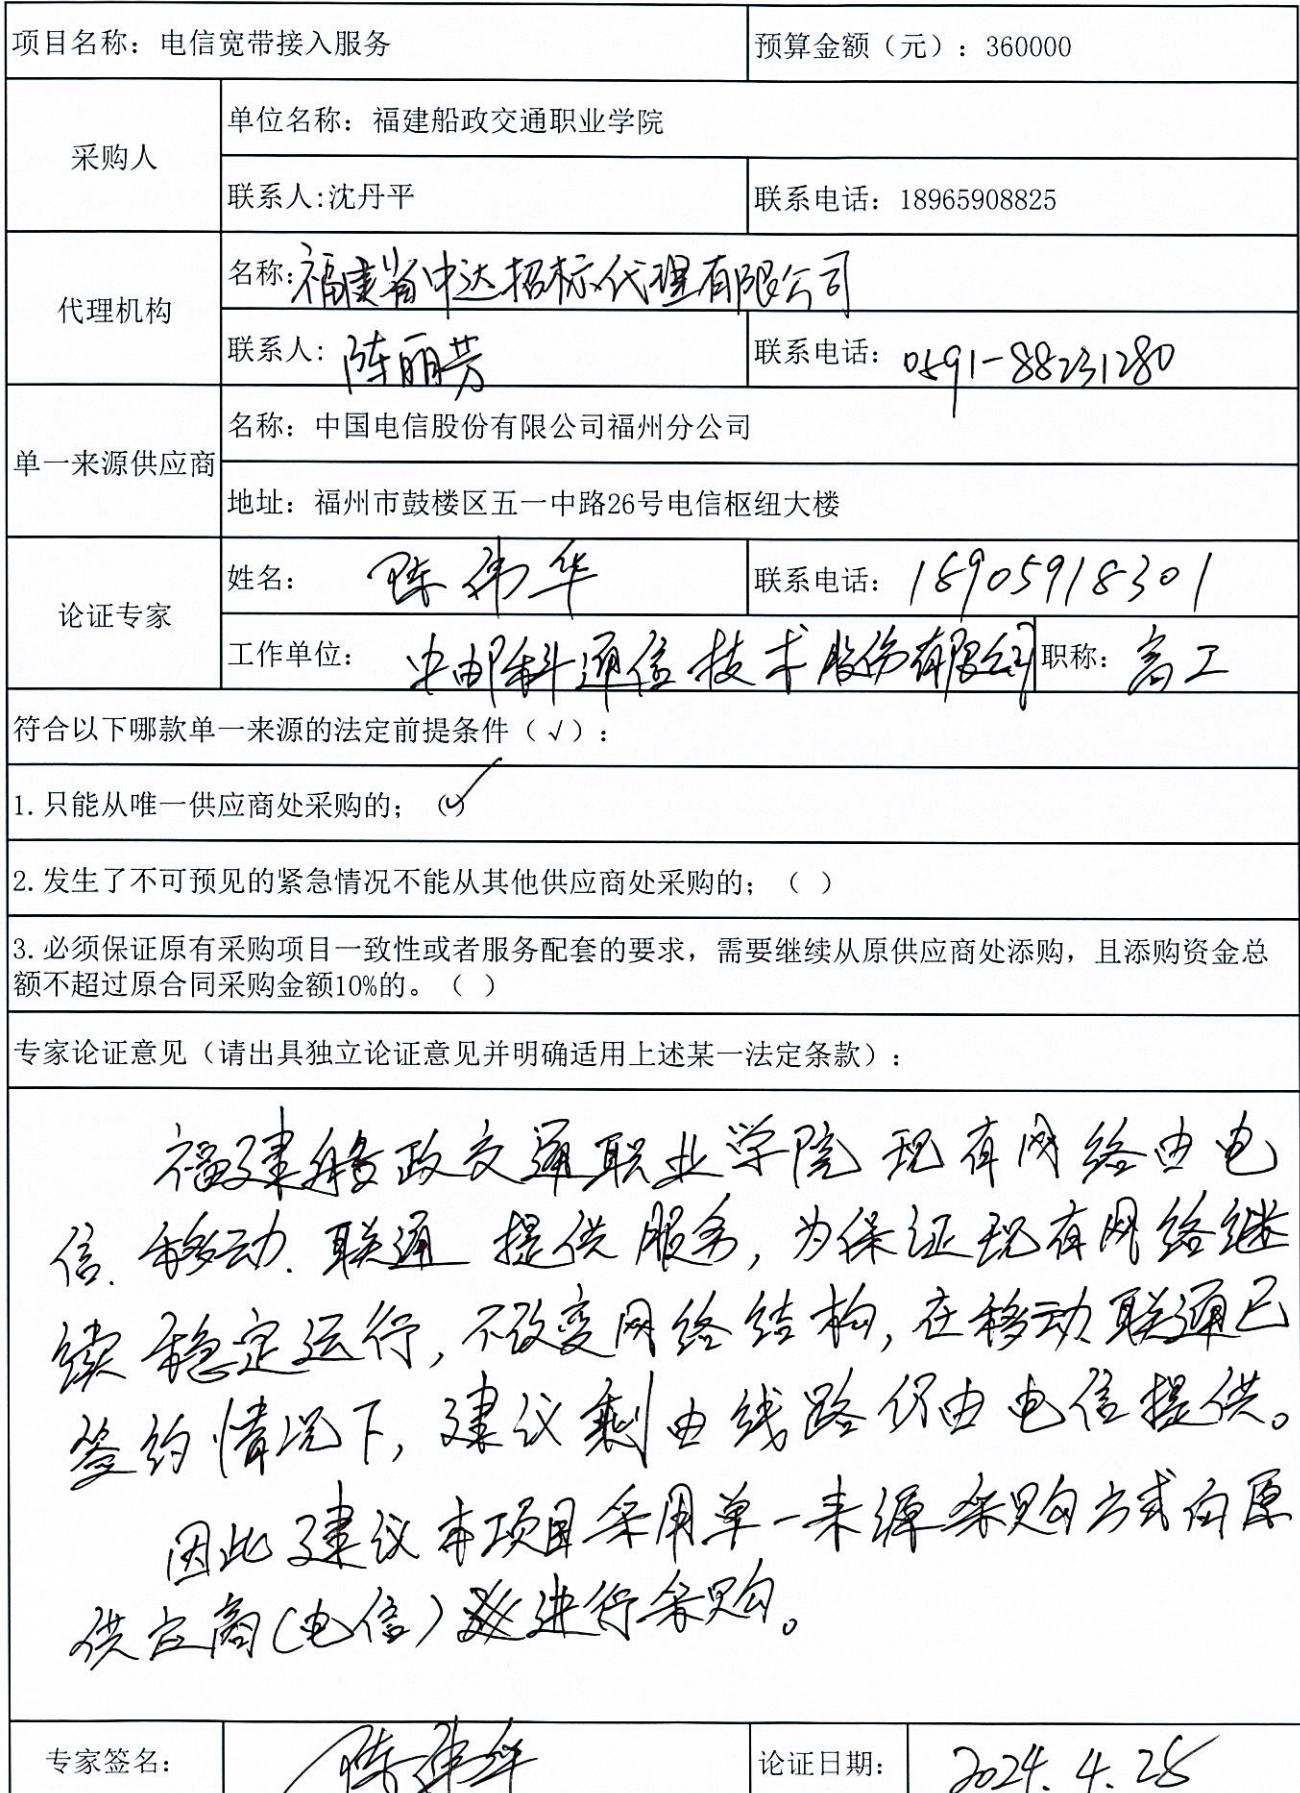 项目名称：电信宽带接入服务 预算金额（元）：360000
采购人 单位名称：福建船政交通职业学院
联系人:沈丹平 联系电话：18965908825
代理机构 名称:福建省中达招标代理有限公司
联系人: 陈丽芳 联系电话：0591-88231280
单一来源供应商 名称：中国电信股份有限公司福州分公司
地址：福州市鼓楼区五一中路26号电信枢纽大楼
论证专家 姓名： 陈伟华 联系电话：18905918301
工作单位： 中邮科通信技术股份有限公司 职称：高工
符合以下哪款单一来源的法定前提条件（√）：
1.只能从唯一供应商处采购的；（✓）
2.发生了不可预见的紧急情况不能从其他供应商处采购的；（ ）
3.必须保证原有采购项目一致性或者服务配套的要求，需要继续从原供应商处添购，且添购资金总
额不超过原合同采购金额10%的。（ ）
专家论证意见（请出具独立论证意见并明确适用上述某一法定条款）：
福建船政交通职业学院现有网络由电
信、移动、联通 提供服务，为保证现有网络继
续稳定运行，不改变网络结构，在移动、联通已
签约情况下，建议剩由线路仍由电信提供。
因此建议本项目采用单一来源采购方式向原
供应商（电信）进行采购。
专家签名： 陈伟华 论证日期： 2024.4.25